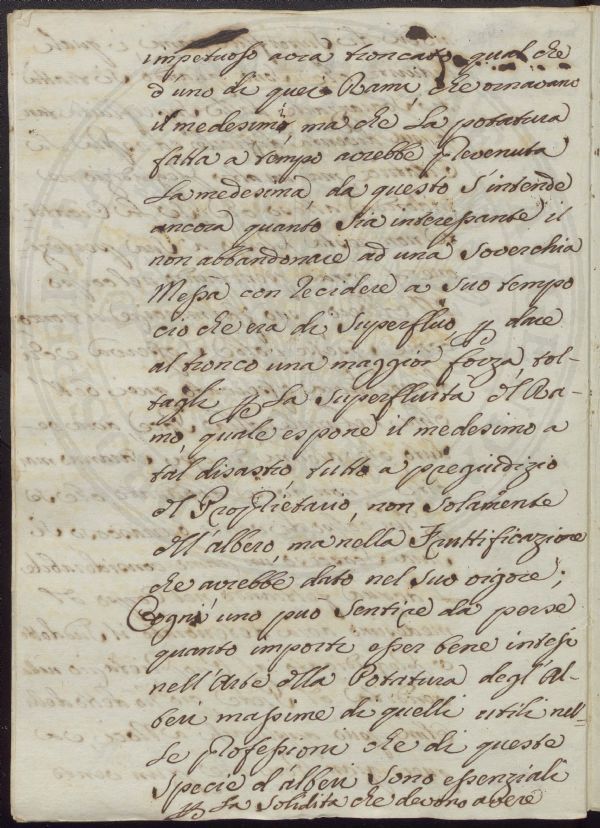 impetuoso avra troncato qual che
d uno di quei Rami, che ornavano
il medesimi, ma che la potatura
fatta a tempo avrebbe prevenuta
La medesima, da questo s'intende
ancora quanto sia interessante il
non abbandonare ad una soverchia
Messa con recidere a suo tempo
cio che era di superfluo, p dare
al tronco una maggior forza, tol-
tagli p la superfluità del Ra-
mo, quale espone il medesimo a
tal disastro, tutto a pregiudizio
del Proprietario, non solamente
dell'albero, ma nella Fruttificazione
che avrebbe dato nel suo vigore;
Cogni uno può sentire da perse
quanto importi esser bene intesi
nell'Arte della Potatura degl'Al-
beri massime di quelli utili nel-
le Professioni che di queste
specie d'alberi sono essenziali
p la solidità che devono avere